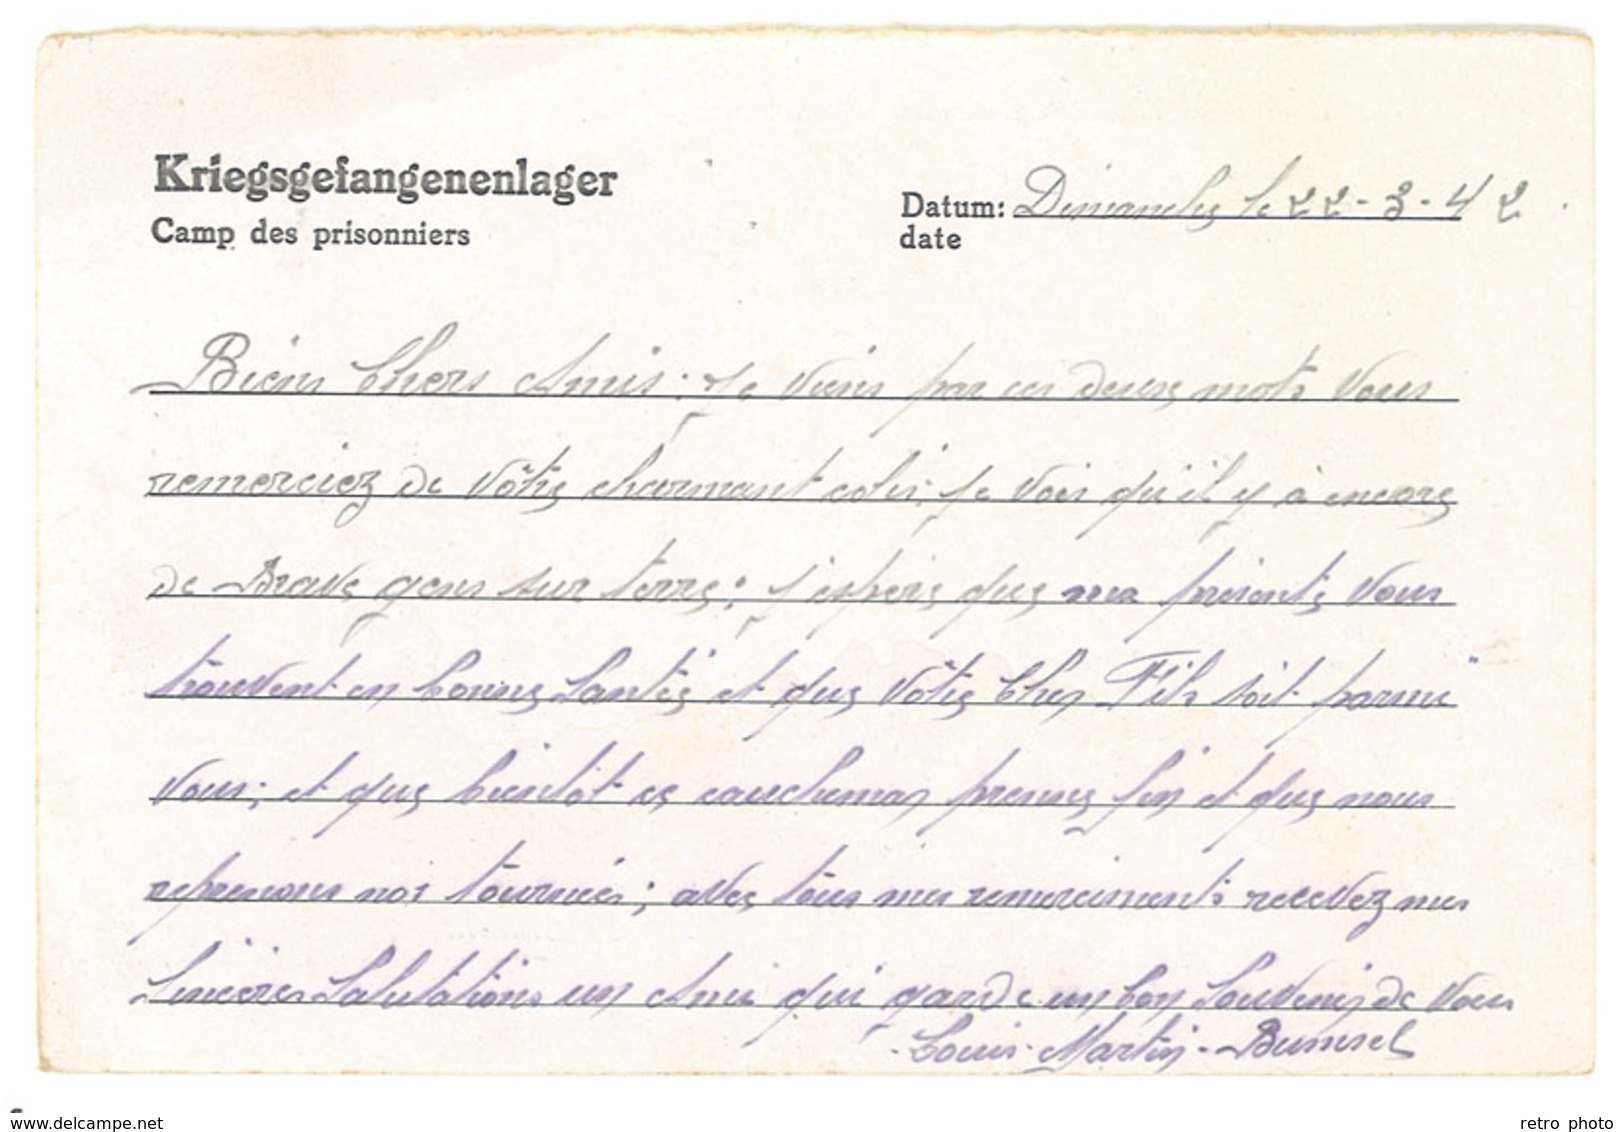 Kriegsgefangenenlager
Camp des prisonniers
Datum: Dimanche le 22-3-42
date
Bien Chers Amis: Je viens par ces deux mots vous
remerciez de vôtre charmant colis; Je vois qu'il y à encore
de Brave gens sur terre; J'espere que mes présents vous
trouvent en bonne santée et que vôtre cher Fils soit parmi
vous; et que bientôt ce cauchemar prenne fin et que nous
reprenions nos tournées; avec tous mes remerciments recevez mes
sincères salutations un Ami qui garde un bon souvenir de vous
Louis Martin
delcampe.net
retro photo